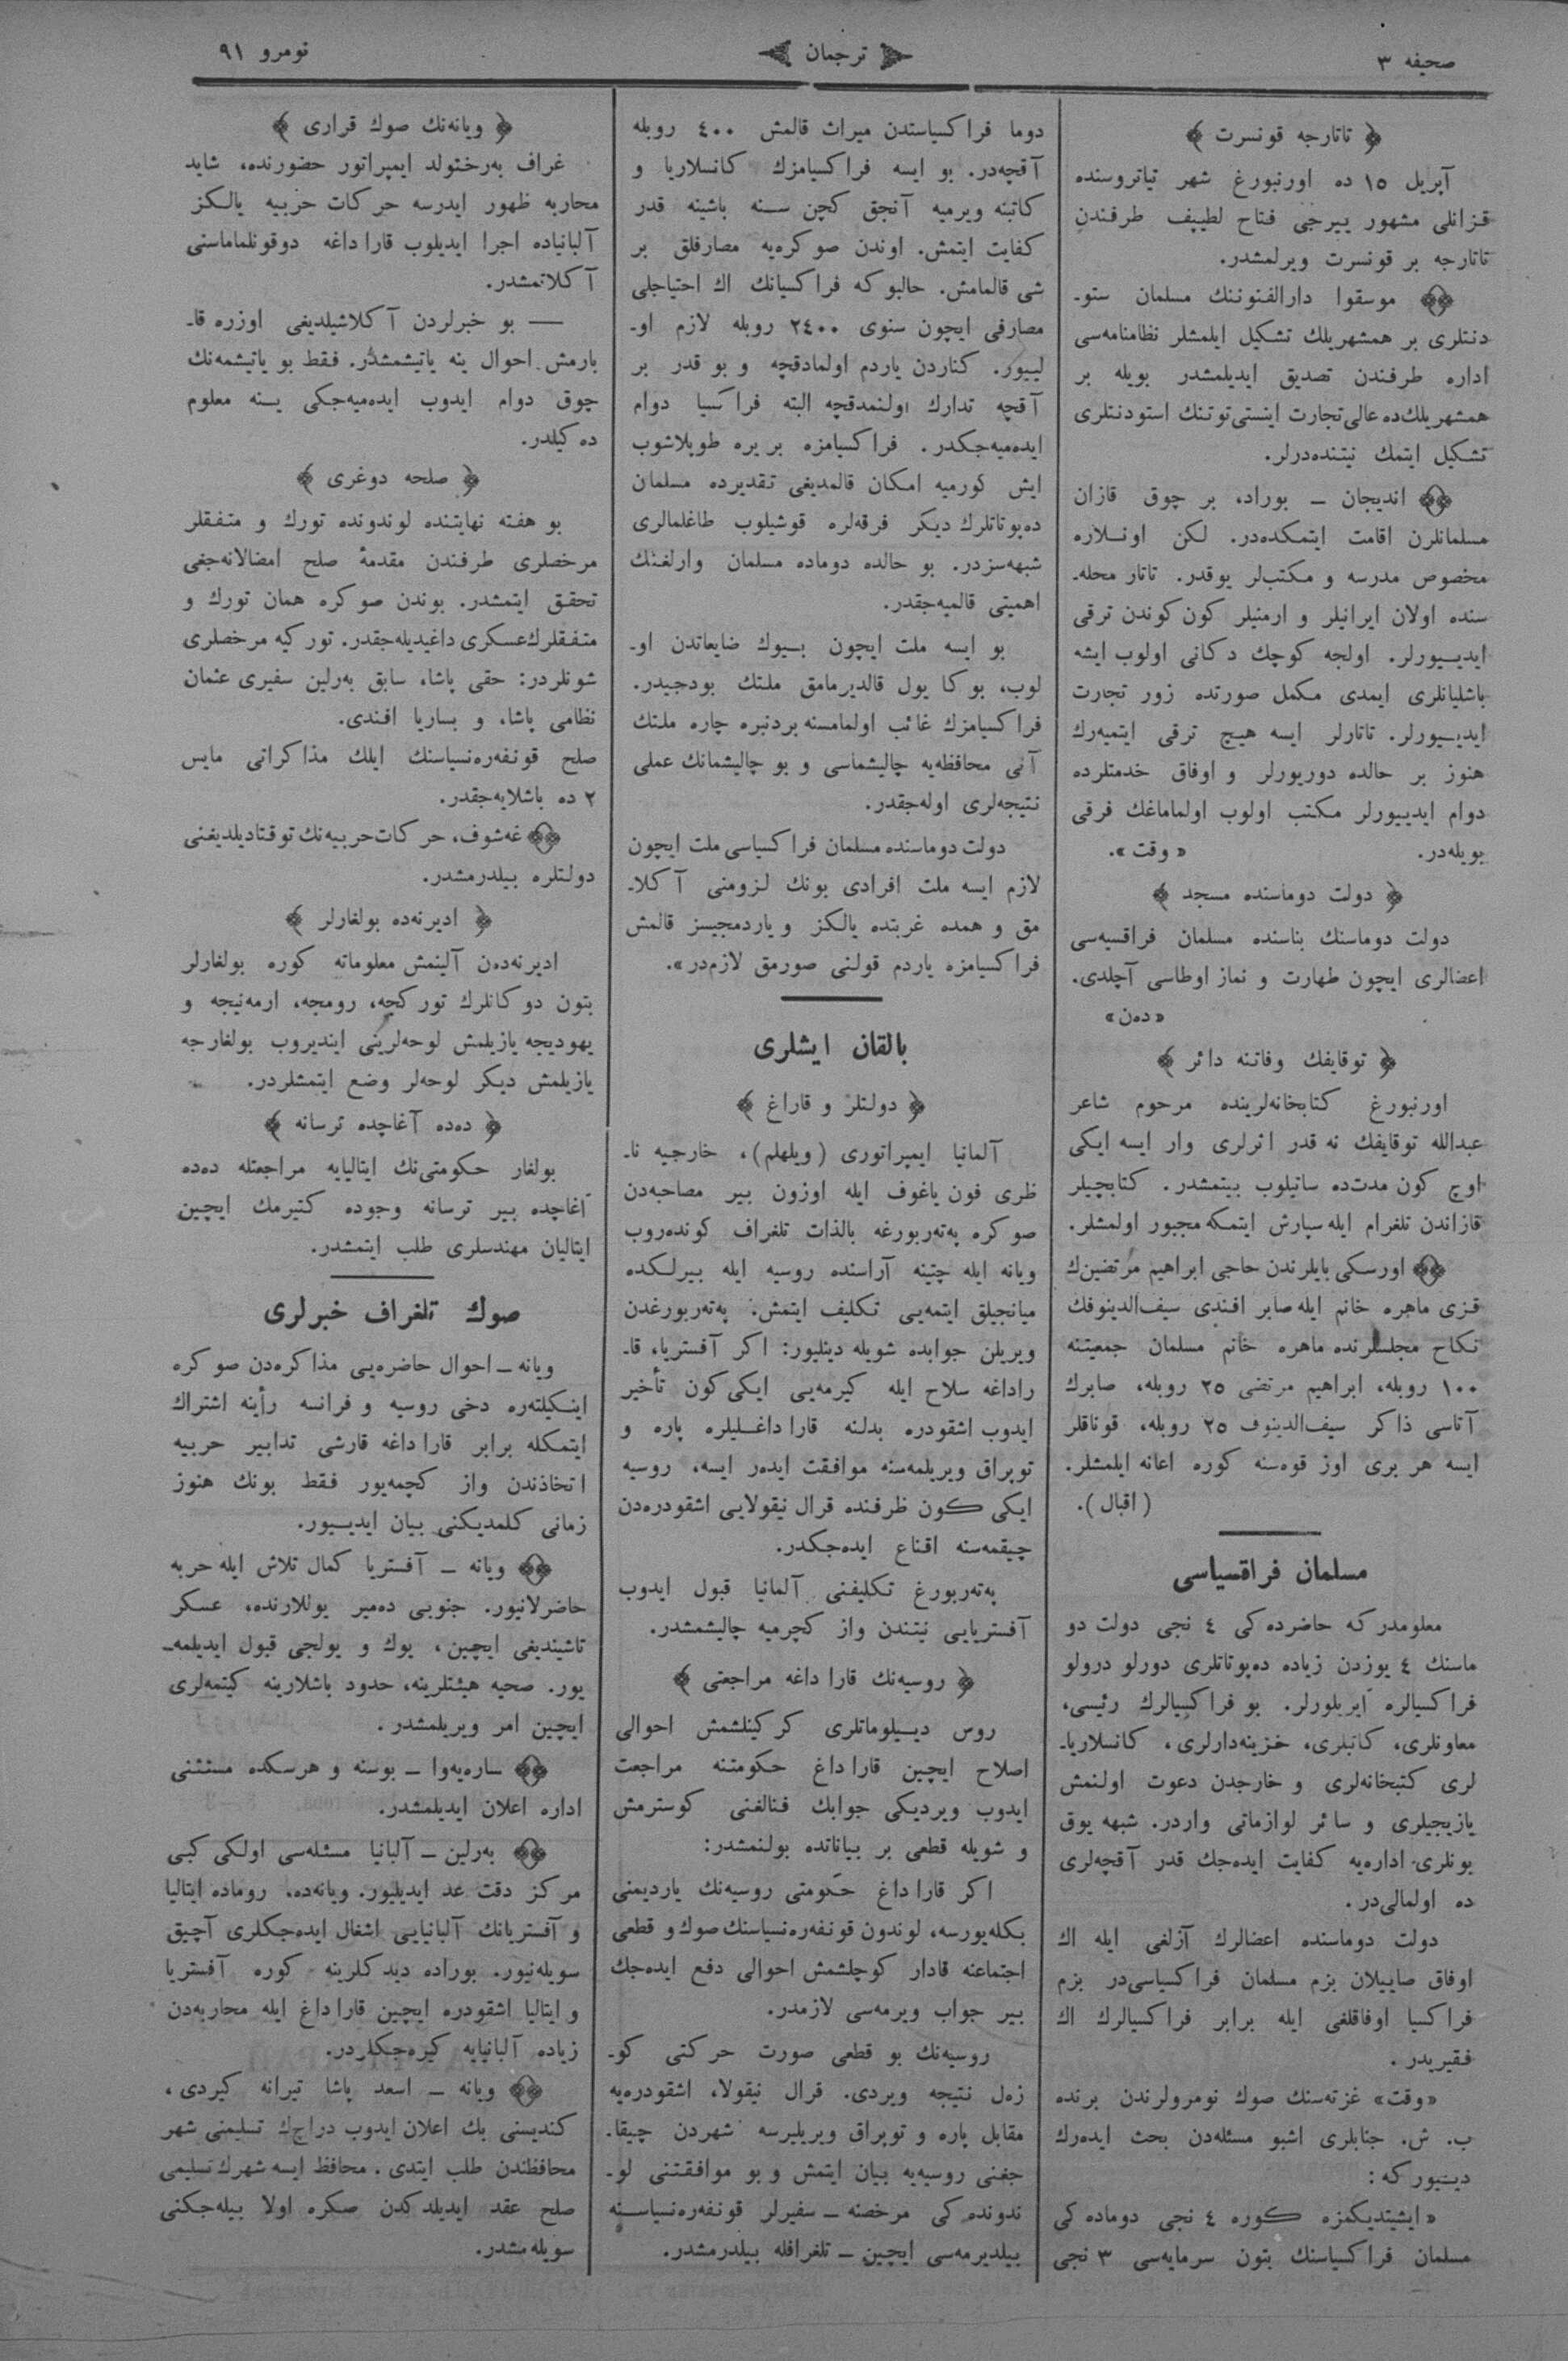 صحیفه ۳
ترجمان
نومرو ۹۱
﴿ تاتارجه قونسرت ﴾
آپریل ۱۵ ده اورنبورغ شهر تیاتروسنده
قزانلی مشهور ییرجی فتاح لطیپف طرفندن
تاتارجه بر قونسرت ویرلمشدر.
موسقوا دارالفنوننك مسلمان ستو-
دنتلری بر همشهریلك تشکیل ایلمشلر نظامنامه‌سی
اداره طرفندن تصدیق ایدیلمشدر بویله بر
همشهریلك‌ده عالی تجارت اینستی‌توتنك استودنتلری
تشکیل ایتمك نیتنده‌درلر.
اندیجان ـ بوراده بر چوق قازان
مسلمانلرن اقامت ایتمکده‌در. لکن اونلاره
مخصوص مدرسه و مکتب‌لر یوقدر. تاتار محله-
سنده اولان ایرانیلر و ارمنیلر کون کوندن ترقی
ایدییورلر. اولجه کوچك دکانی اولوب ایشه
باشلیانلری ایمدی مکمل صورتده زور تجارت
ایدییورلر. تاتارلر ایسه هیچ ترقی ایتمیه‌رك
هنوز بر حالده دوریورلر و اوفاق خدمتلرده
دوام ایدییورلر مکتب اولوب اولماماغك فرقی
بویله‌در. « وقت ».
﴿ دولت دوماسنده مسجد ﴾
دولت دوماسنك بناسنده مسلمان فراقسیه‌سی
اعضالری ایچون طهارت و نماز اوطاسی آچلدی.
«ده‌ن»
﴿ توقایفك وفاتنه دائر ﴾
اورنبورغ کتابخانه‌لرینده مرحوم شاعر
عبدالله توقایفك نه قدر اثرلری وار ایسه ایکی
اوچ کون مدت‌ده ساتیلوب بیتمشدر. کتابچیلر
قازاندن تلغرام ایله سپارش ایتمکه مجبور اولمشلر.
اورسکی بایلرندن حاجی ابراهیم مرتضین‌ك
قزی ماهره خانم ایله صابر افندی سیف‌الدینوفك
نکاح مجلسلرنده ماهره خانم مسلمان جمعیتنه
۱۰۰ روبله، ابراهیم مرتضی ۲۵ روبله، صابرك
آتاسی ذاکر سیف‌الدینوف ۲۵ روبله، قوناقلر
ایسه هر بری اوز قوه‌سنه کوره اعانه ایلمشلر.
( اقبال ).
مسلمان فراقسیاسی
معلومدرکه حاضرده‌کی ٤ نجی دولت دو
ماسنك ٤ یوزدن زیاده ده‌پوتاتلری دورلو درولو
فراکسیالره آیریلورلر. بو فراکسیالرك رئیسی،
معاونلری، کاتبلری، خزینه‌دارلری، کانسلاریا-
لری کتبخانه‌لری و خارجدن دعوت اولنمش
یازیجیلری و سائر لوازماتی واردر. شبهه یوق
بونلری اداره‌یه کفایت ایده‌جك قدر آقچه‌لری
ده اولمالی‌در.
دولت دوماسنده اعضالرك آزلغی ایله اك
اوفاق صاییلان بزم مسلمان فراکسیاسی‌در بزم
فراکسیا اوفاقلغی ایله برابر فراکسیالرك اك
فقیریدر.
«وقت» غزته‌سنك صوك نومرولرندن برنده
ب. ش. جنابلری اشبو مسئله‌دن بحث ایده‌رك
دینیورکه :
« ایشیتدیکمزه کوره ٤ نجی دوماده‌کی
مسلمان فراکسیاسنك بتون سرمایه‌سی ۳ نجی
دوما فراکسیاسندن میراث قالمش ٤۰۰ روبله
آقچه‌در. بو ایسه فراکسیامزك کانسلاریا و
کاتبنه ویرمیه آنجق کچن سنه باشینه قدر
کفایت ایتمش. اوندن صوکره‌یه مصارفلق بر
شی قالمامش. حالبوکه فراکسیانك اك احتیاجلی
مصارفی ایچون سنوی ۲٤۰۰ روبله لازم او-
لییور. کناردن یاردم اولمادقچه و بو قدر بر
آقچه تدارك اولنمدقچه البته فراکسیا دوام
ایده‌میه‌جکدر. فراکسیامزه بر یره طوپلاشوب
ایش کورمیه امکان قالمدیغی تقدیرده مسلمان
ده‌پوتاتلرك دیکر فرقه‌لره قوشیلوب طاغلمالری
شبهه‌سزدر. بو حالده دوماده مسلمان وارلغنك
اهمیتی قالمیه‌جقدر.
بو ایسه ملت ایچون بیوك ضایعاتدن او-
لوب، بوکا یول قالدیرمامق ملتك بورجیدر.
فراکسیامزك غائب اولمامسنه بردنبره چاره ملتك
آنی محافظه‌یه چالیشماسی و بو چالیشمانك عملی
نتیجه‌لری اوله‌جقدر.
دولت دوماسنده مسلمان فراکسیاسی ملت ایچون
لازم ایسه ملت افرادی بونك لزومنی آکلا-
مق و همده غربتده یالکز و یاردمجیسز قالمش
فراکسیامزه یاردم قولنی صورمق لازم‌در».
بالقان ایشلری
﴿ دولتلر و قاراغ ﴾
آلمانیا ایمپراتوری (ویلهلم)، خارجیه نا-
ظری فون یاغوف ایله اوزون بیر مصاحبه‌دن
صوکره پەتەربورغه بالذات تلغراف کونده‌روب
ویانه ایله چتینه آراسنده روسیه ایله بیرلکده
میانجیلق ایتمه‌یی تکلیف ایتمش: پەتەربورغدن
ویریلن جوابده شویله دینلیور: اکر آفستریا، قا-
راداغه سلاح ایله کیرمه‌یی ایکی کون تأخیر
ایدوب اشقودره بدلنه قاراداغلیلره پاره و
توپراق ویریلمه‌سنه موافقت ایدەر ایسه، روسیه
ایکی کون ظرفنده قرال نیقولایی اشقودره‌دن
چیقمه‌سنه اقناع ایده‌جکدر.
پەتەربورغ تکلیفنی آلمانیا قبول ایدوب
آفستریایی نیتندن واز کچرمیه چالیشمشدر.
﴿ روسیه‌نك قاراداغه مراجعتی ﴾
روس دیپلوماتلری کرکینلشمش احوالی
اصلاح ایچین قاراداغ حکومتنه مراجعت
ایدوب ویردیکی جوابك فنالغنی کوسترمش
و شویله قطعی بر بیاناتده بولنمشدر:
اکر قاراداغ حکومتی روسیه‌نك یاردیمنی
بکله‌یورسه، لوندون قونفه‌ره‌نسیاسنك صوك و قطعی
اجتماعنه قادار کوچلشمش احوالی دفع ایده‌جك
بیر جواب ویرمه‌سی لازمدر.
روسیه‌نك بو قطعی صورت حرکتی کو-
زەل نتیجه ویردی. قرال نیقولا، اشقودره‌یه
مقابل پاره و توپراق ویریلیرسه شهردن چیقا-
جغنی روسیه‌یه بیان ایتمش و بو موافقتنی لو-
ندونده‌کی مرخصنه ـ سفیرلر قونفه‌ره‌نسیاسنه
بیلدیرمه‌سی ایچین ـ تلغرافله بیلدرمشدر.
﴿ ویانه‌نك صوك قراری ﴾
غراف به‌رختولد ایمپراتور حضورنده، شاید
محاربه ظهور ایدرسه حرکات حربیه یالکز
آلبانیاده اجرا ایدیلوب قاراداغه دوقونلماماسنی
آکلاتمشدر.
— بو خبرلردن آکلاشیلدیغی اوزره قا-
بارمش احوال ینه یاتیشمشدر. فقط بو یاتیشمه‌نك
چوق دوام ایدوب ایده‌میه‌جکی ینه معلوم
ده‌کیلدر.
﴿ صلحه دوغری ﴾
بو هفته نهایتنده لوندونده تورك و متفقلر
مرخصلری طرفندن مقدمهٔ صلح امضالانه‌جغی
تحقق ایتمشدر. بوندن صوکره همان تورك و
متفقلرك عسکری داغیدیله‌جقدر. تورکیه مرخصلری
شونلردر: حقی پاشا، سابق به‌رلین سفیری عثمان
نظامی پاشا، و بساریا افندی.
صلح قونفه‌ره‌نسیاسنك ایلك مذاکراتی مایس
۲ ده باشلایه‌جقدر.
غه‌شوف، حرکات حربیه‌نك توقتادیلدیغنی
دولتلره بیلدرمشدر.
﴿ ادیرنه‌ده بولغارلر ﴾
ادیرنه‌دەن آلینمش معلوماته کوره بولغارلر
بتون دوکانلرك تورکجه، رومجه، ارمه‌نیجه و
یهودیجه یازیلمش لوحه‌لرینی ایندیروب بولغارجه
یازیلمش دیکر لوحه‌لر وضع ایتمشلردر.
﴿ ده‌ده آغاچده ترسانه ﴾
بولغار حکومتی‌نك ایتالیایه مراجعتله ده‌ده
آغاچده بیر ترسانه وجوده کتیرمك ایچین
ایتالیان مهندسلری طلب ایتمشدر.
صوك تلغراف خبرلری
ویانه ـ احوال حاضره‌یی مذاکره‌دن صوکره
اینکیلته‌ره دخی روسیه و فرانسه رأینه اشتراك
ایتمکله برابر قاراداغه قارشی تدابیر حربیه
اتخاذندن واز کچمه‌یور فقط بونك هنوز
زمانی کلمدیکنی بیان ایدییور.
ویانه ـ آفستریا کمال تلاش ایله حربه
حاضرلانیور. جنوبی ده‌میر یوللارنده، عسکر
تاشیندیغی ایچین، یوك و یولجی قبول ایدیلمه-
یور. صحیه هیئتلرینه، حدود باشلارینه کیتمه‌لری
ایچین امر ویریلمشدر.
ساره‌یه‌وا ـ بوسنه و هرسکده مستثنی
اداره اعلان ایدیلمشدر.
به‌رلین ـ آلبانیا مسئله‌سی اولکی کبی
مرکز دقت عد ایدیلیور. ویانه‌ده، روماده ایتالیا
و آفستریانك آلبانیایی اشغال ایده‌جکلری آچیق
سویله‌نیور. بوراده دیدکلرینه کوره آفستریا
و ایتالیا اشقودره ایچین قاراداغ ایله محاربه‌دن
زیاده آلبانیایه کیره‌جکلردر.
ویانه ـ اسعد پاشا تیرانه کیردی،
کندیسنی بك اعلان ایدوب دراچ‌ك تسلیمنی شهر
محافظندن طلب ایتدی. محافظ ایسه شهرك تسلیمی
صلح عقد ایدیلدکدن صکره اولا بیله‌جکنی
سویله‌مشدر.